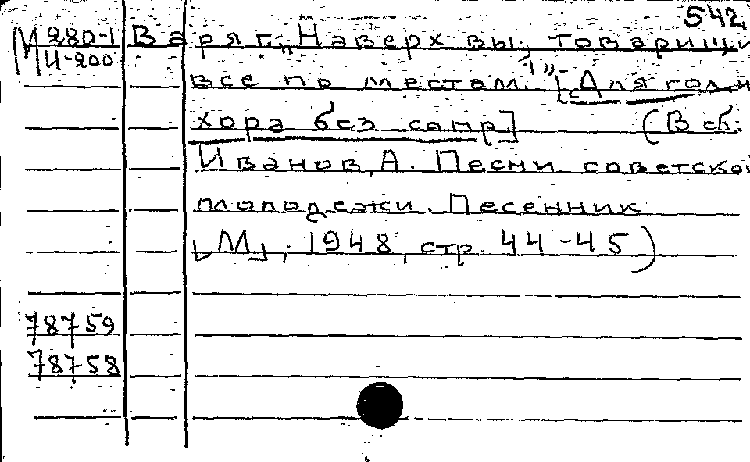 542
М 280-1 Варяг. „Наверх вы, товарищи
М И-200 все по местам.!" [Для голи
хора без сопр] (В сб:
Иванов, А. Песни советской
молодежи. Песенник
[М], 1948, стр. 44-45)
78759
78758